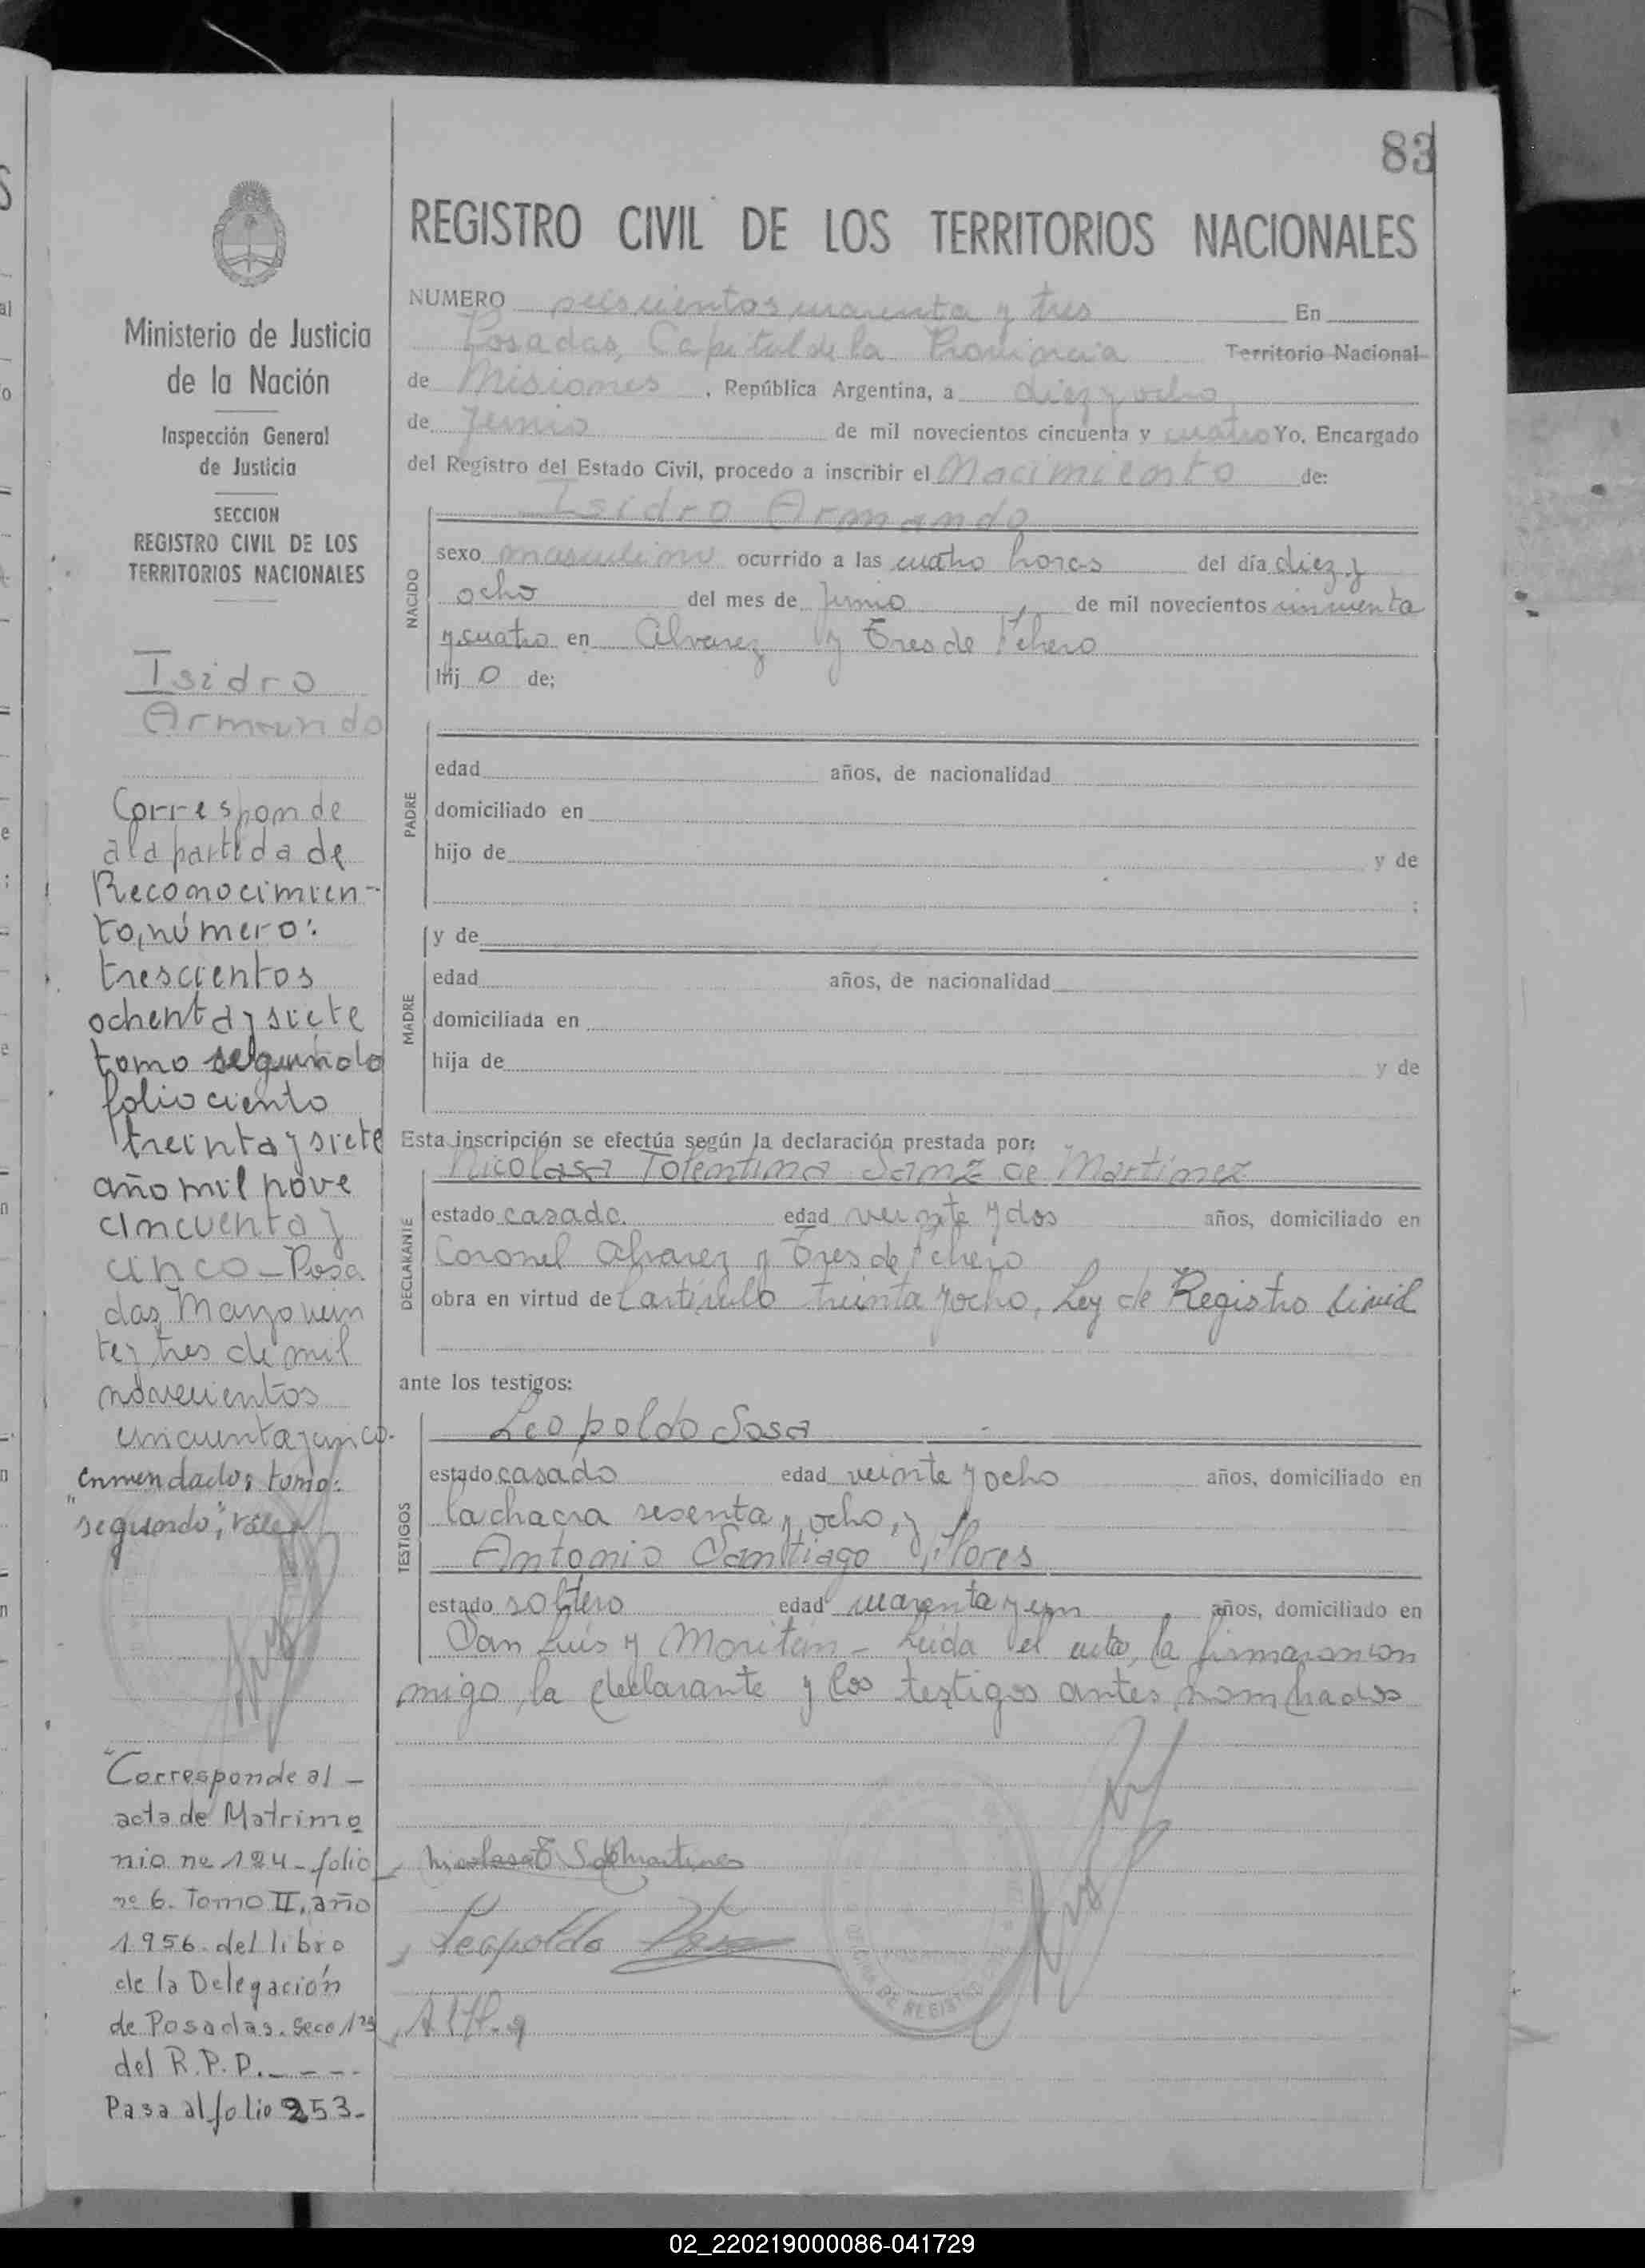 83
REGISTRO CIVIL DE LOS TERRITORIOS NACIONALES
Ministerio de Justicia
de la Nación
Inspección General
de Justicia
SECCION
REGISTRO CIVIL DE LOS
TERRITORIOS NACIONALES
Isidro
Armando
Corresponde
a la partida de
Reconocimien-
to, número:
trescientos
ochenta y siete
tomo segundo
folio ciento
treinta y siete
año mil nove
cincuenta y
cinco - Posa
das, Marzo vein
te y tres de mil
novecientos
cincuenta y cinco.
Enmendado: tomo:
"segundo", vale
"Corresponde al -
acta de Matrimo
nio nº 124 - folio
nº 6. Tomo II, año
1956. del libro
de la Delegación
de Posadas. Secc 1ra
del R.P.P. - - -
Pasa al folio 253.-
NUMERO seiscientos cuarenta y tres En
Posadas, Capital de la Provincia Territorio Nacional
de Misiones, República Argentina, a diez y ocho
de Junio de mil novecientos cincuenta y cuatro Yo, Encargado
del Registro del Estado Civil, procedo a inscribir el Nacimiento de:
Isidro Armando
NACIDO
sexo masculino ocurrido a las cuatro horas del día diez y
ocho del mes de Junio, de mil novecientos cincuenta
y cuatro en Alvarez y Tres de Febrero
hij o de:
PADRE
edad años, de nacionalidad
domiciliado en
hijo de y de
;
y de
MADRE
edad años, de nacionalidad
domiciliada en
hija de y de
Esta inscripción se efectúa según la declaración prestada por:
Nicolasa Tolentina Sanz de Martinez
DECLARANTE
estado casada edad veinte y dos años, domiciliado en
Coronel Alvarez y Tres de Febrero
obra en virtud de l artículo treinta y ocho, Ley de Registro Civil
ante los testigos:
TESTIGOS
Leopoldo Sosa
estado casado edad veinte y ocho años, domiciliado en
la chacra sesenta y ocho, y
Antonio Santiago Flores
estado soltero edad cuarenta y un, años, domiciliado en
San Luis y Moritán - Leída el acta, la firmaron con
migo, la declarante y los testigos antes nombrados
Nicolasa T S de Martinez
Leopoldo Sosa
DE REGISTRO
02_220219000086-041729